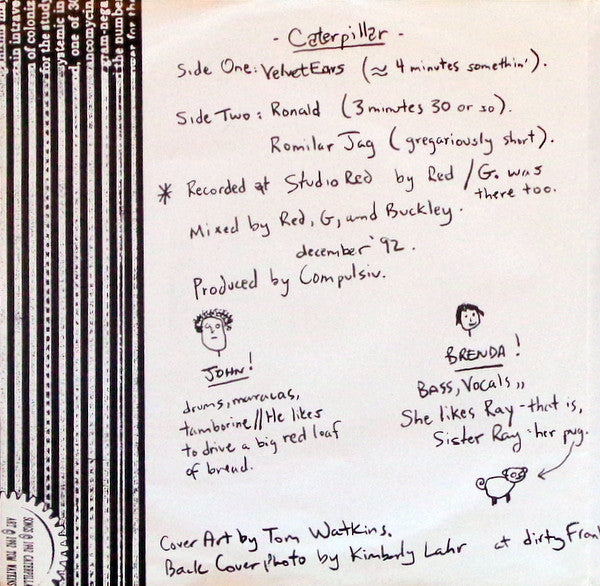 - Caterpillar -
Side One: Velvet Ears (≈ 4 minutes somethin').
Side Two: Ronald (3 minutes 30 or so).
Romilar Jag (gregariously short).
* Recorded at Studio Red by Red / G. was
there too.
Mixed by Red, G, and Buckley.
december '92.
Produced by Compulsiv.
JOHN!
drums, maracas,
tamborine // He likes
to drive a big red loaf
of bread.
BRENDA!
BASS, Vocals,,
She likes Ray - that is,
Sister Ray - her pug.
Cover Art by Tom Watkins.
Back Cover Photo by Kimberly Lahr at dirty Fran
SONGS © 1992 CATERPILLAR
ART © 1992 TOM WATKINS
in intrave
of coloniz
for the study
systemic in
d, one of 30
ancomycin
gram-nega
the number